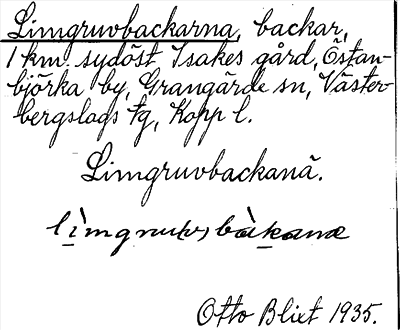 Limgruvbackarna, backar,
1 km. sydöst Isakes gård, Östan-
björka by, Grangärde sn, Väster-
bergslags tg, Kopp l.
Limgruvbackanä.
Otto Blixt 1935.